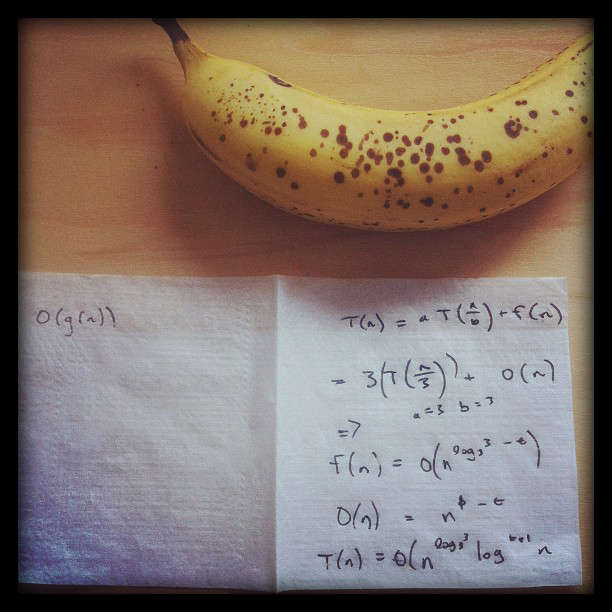 O(g(n))
T(n) = a T(n/b) + f(n)
= 3(T(n/3)) + O(n)
a=3 b=3
=>
f(n) = O(n^(log₃3 - ε))
O(n) = n^(1 - ε)
T(n) = Θ(n^(log₃3) log^(k+1) n